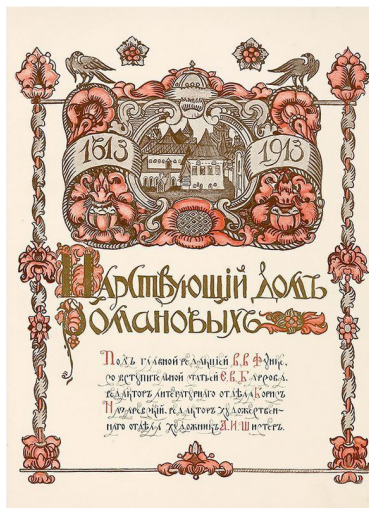 1613
1913
Царствующій домъ
Романовыхъ
Подъ главной редакціей В,В Функе,
со вступительной статьей Е.В. Барсова.
редакторъ литературнаго отдѣла Борис
Назаревскій. редакторъ художествен-
наго отдѣла художникъ А.И. Шмтеръ.